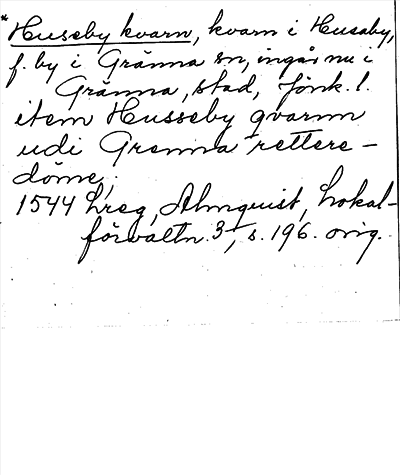 * Huseby kvarn, kvarn i Husaby,
f. by i Gränna sn, ingår nu i
Gränna, stad, Jönk. l.
item Husseby qvarnn
udi Grenna rettere-
döme,
1544 Lreg, Almquist, Lokal-
förvaltn. 3, s. 196. orig.